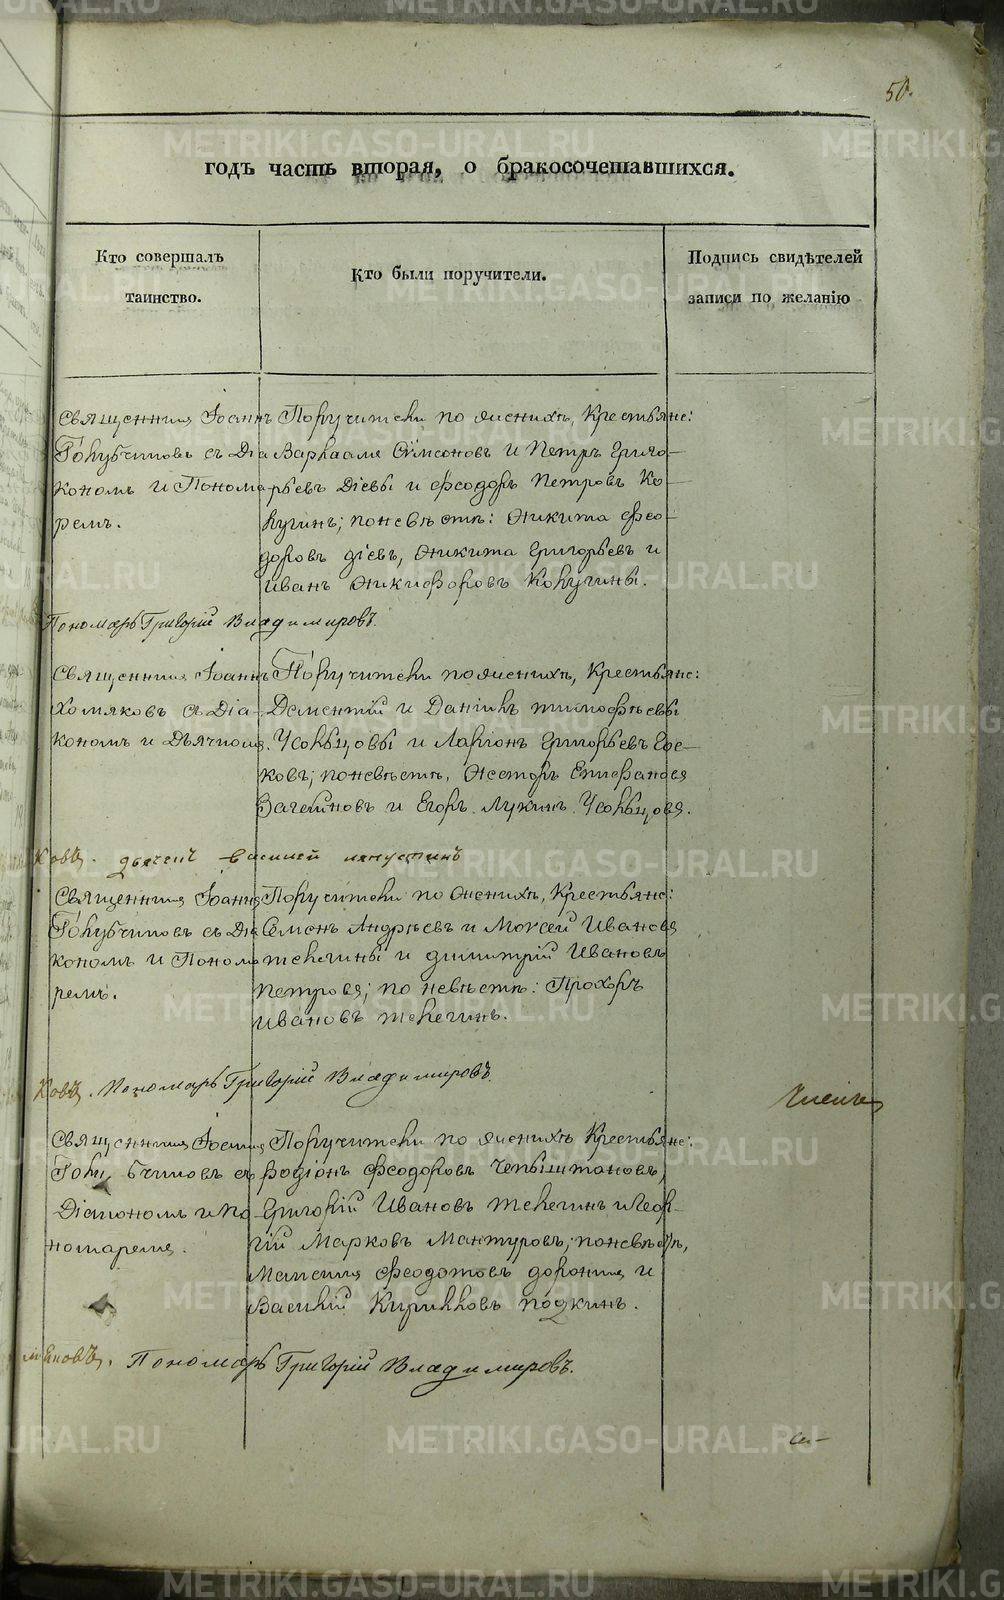 50.
годъ часть вторая, о бракосочетавшихся.
Кто совершалъ
таинство.
Кто были поручители.
Подпись свидѣтелей
записи по желанію
Священникъ Іоаннъ
Голубчиковъ съ Діа
кономъ и Понома
ремъ.
Поручители по женихѣ, Крестьяне:
Варлаамъ Сѷмеоновъ и Петръ Григо-
рьевъ Діевы и Ѳеодоръ Петровъ Ко-
кугинъ; по невѣстѣ: Никита Ѳео-
доровъ Діевъ, Никита Григорьевъ и
Иванъ Никифоровъ Кокугины.
Пономарь Григорій Владимировъ.
Священникъ Іоаннъ
Хомяковъ съ Діа-
кономъ и Дьячкомъ.
Поручители по женихѣ, Крестьяне:
Дементій и Даніилъ Тимофѣевы
Усольцовы и Ларіонъ Григорьевъ
ковъ; по невѣстѣ, Несторъ Епифановъ
и Егоръ Лукинъ Усольцовъ.
ковъ. дьячекъ Василей
Священникъ Іоаннъ
Голубчиковъ съ Діа
кономъ и Понома
ремъ.
Поручители по женихѣ, Крестьяне:
Семенъ Андрѣевъ и Моѵсей Ивановъ
Телегины и Димитрій Ивановъ
Петровъ; по невѣстѣ: Прохоръ
Ивановъ Телегинъ.
ковъ. Пономарь Григорій Владимировъ.
Священникъ Іоаннъ
Голубчиковъ съ
Діакономъ и По-
номаремъ.
Поручители по женихѣ Крестьяне:
Родіонъ Ѳеодоровъ Чепыштановъ,
Григорій Ивановъ Телегинъ и Геор-
гій Марковъ Мантуровъ; по невѣстѣ,
Максимъ Ѳеодотовъ Доронинъ и
Василій Кирилловъ
Пономарь Григорій Владимировъ.
METRIKI.GASO-URAL.RU